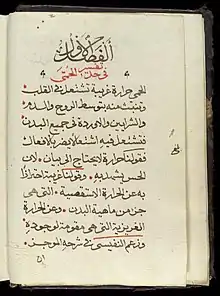 الفصل الاول
في حد الحمى
الحمى حرارة غريبة تشتعل في القلب
وتنبث منه بتوسط الروح والدم
والشرايين والاوردة في جميع البدن
فتشتعل فيه اشتعالا يضر بالافعال
فقولنا حرارة لا يحتاج الى بيان لان
الحس يشهد به وقولنا غريبة احترازا
به عن الحرارة الاسطقسية التي هي
جزء من ماهية البدن وعن الحرارة
الغريزية التي هي مقومة لوجوده
وزعم النفيسي في شرحه للموجز